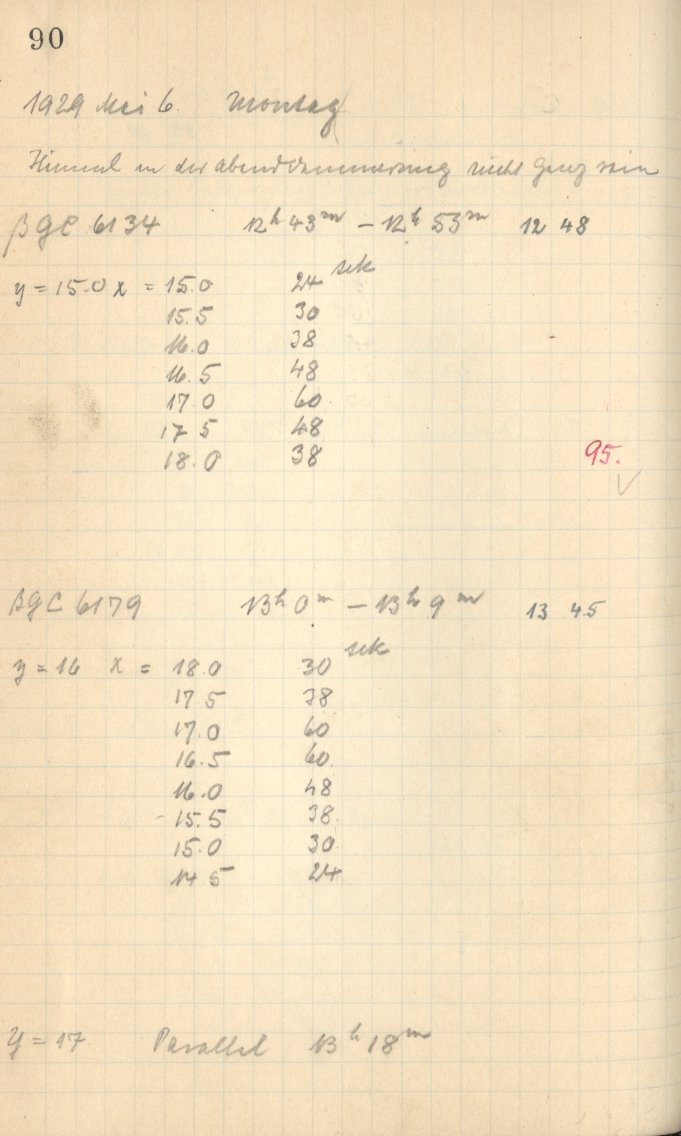 90
1929 Mai 6. Montag
Himmel in der Abenddämmerung nicht ganz rein
βGC 6134 12h 43m – 12h 53m 12 48
y = 15.0 x = 15.0 24 sek
15.5 30
16.0 38
16.5 48
17.0 60
17 5 48
18.0 38
95.
βGC 6179 13h 0m – 13h 9m 13 4.5
y = 16 x = 18.0 30 sek
17.5 38
17.0 60
16.5 60
16.0 48
15.5 38
15.0 30
14 5 24
y = 17 Parallel 13h 18m